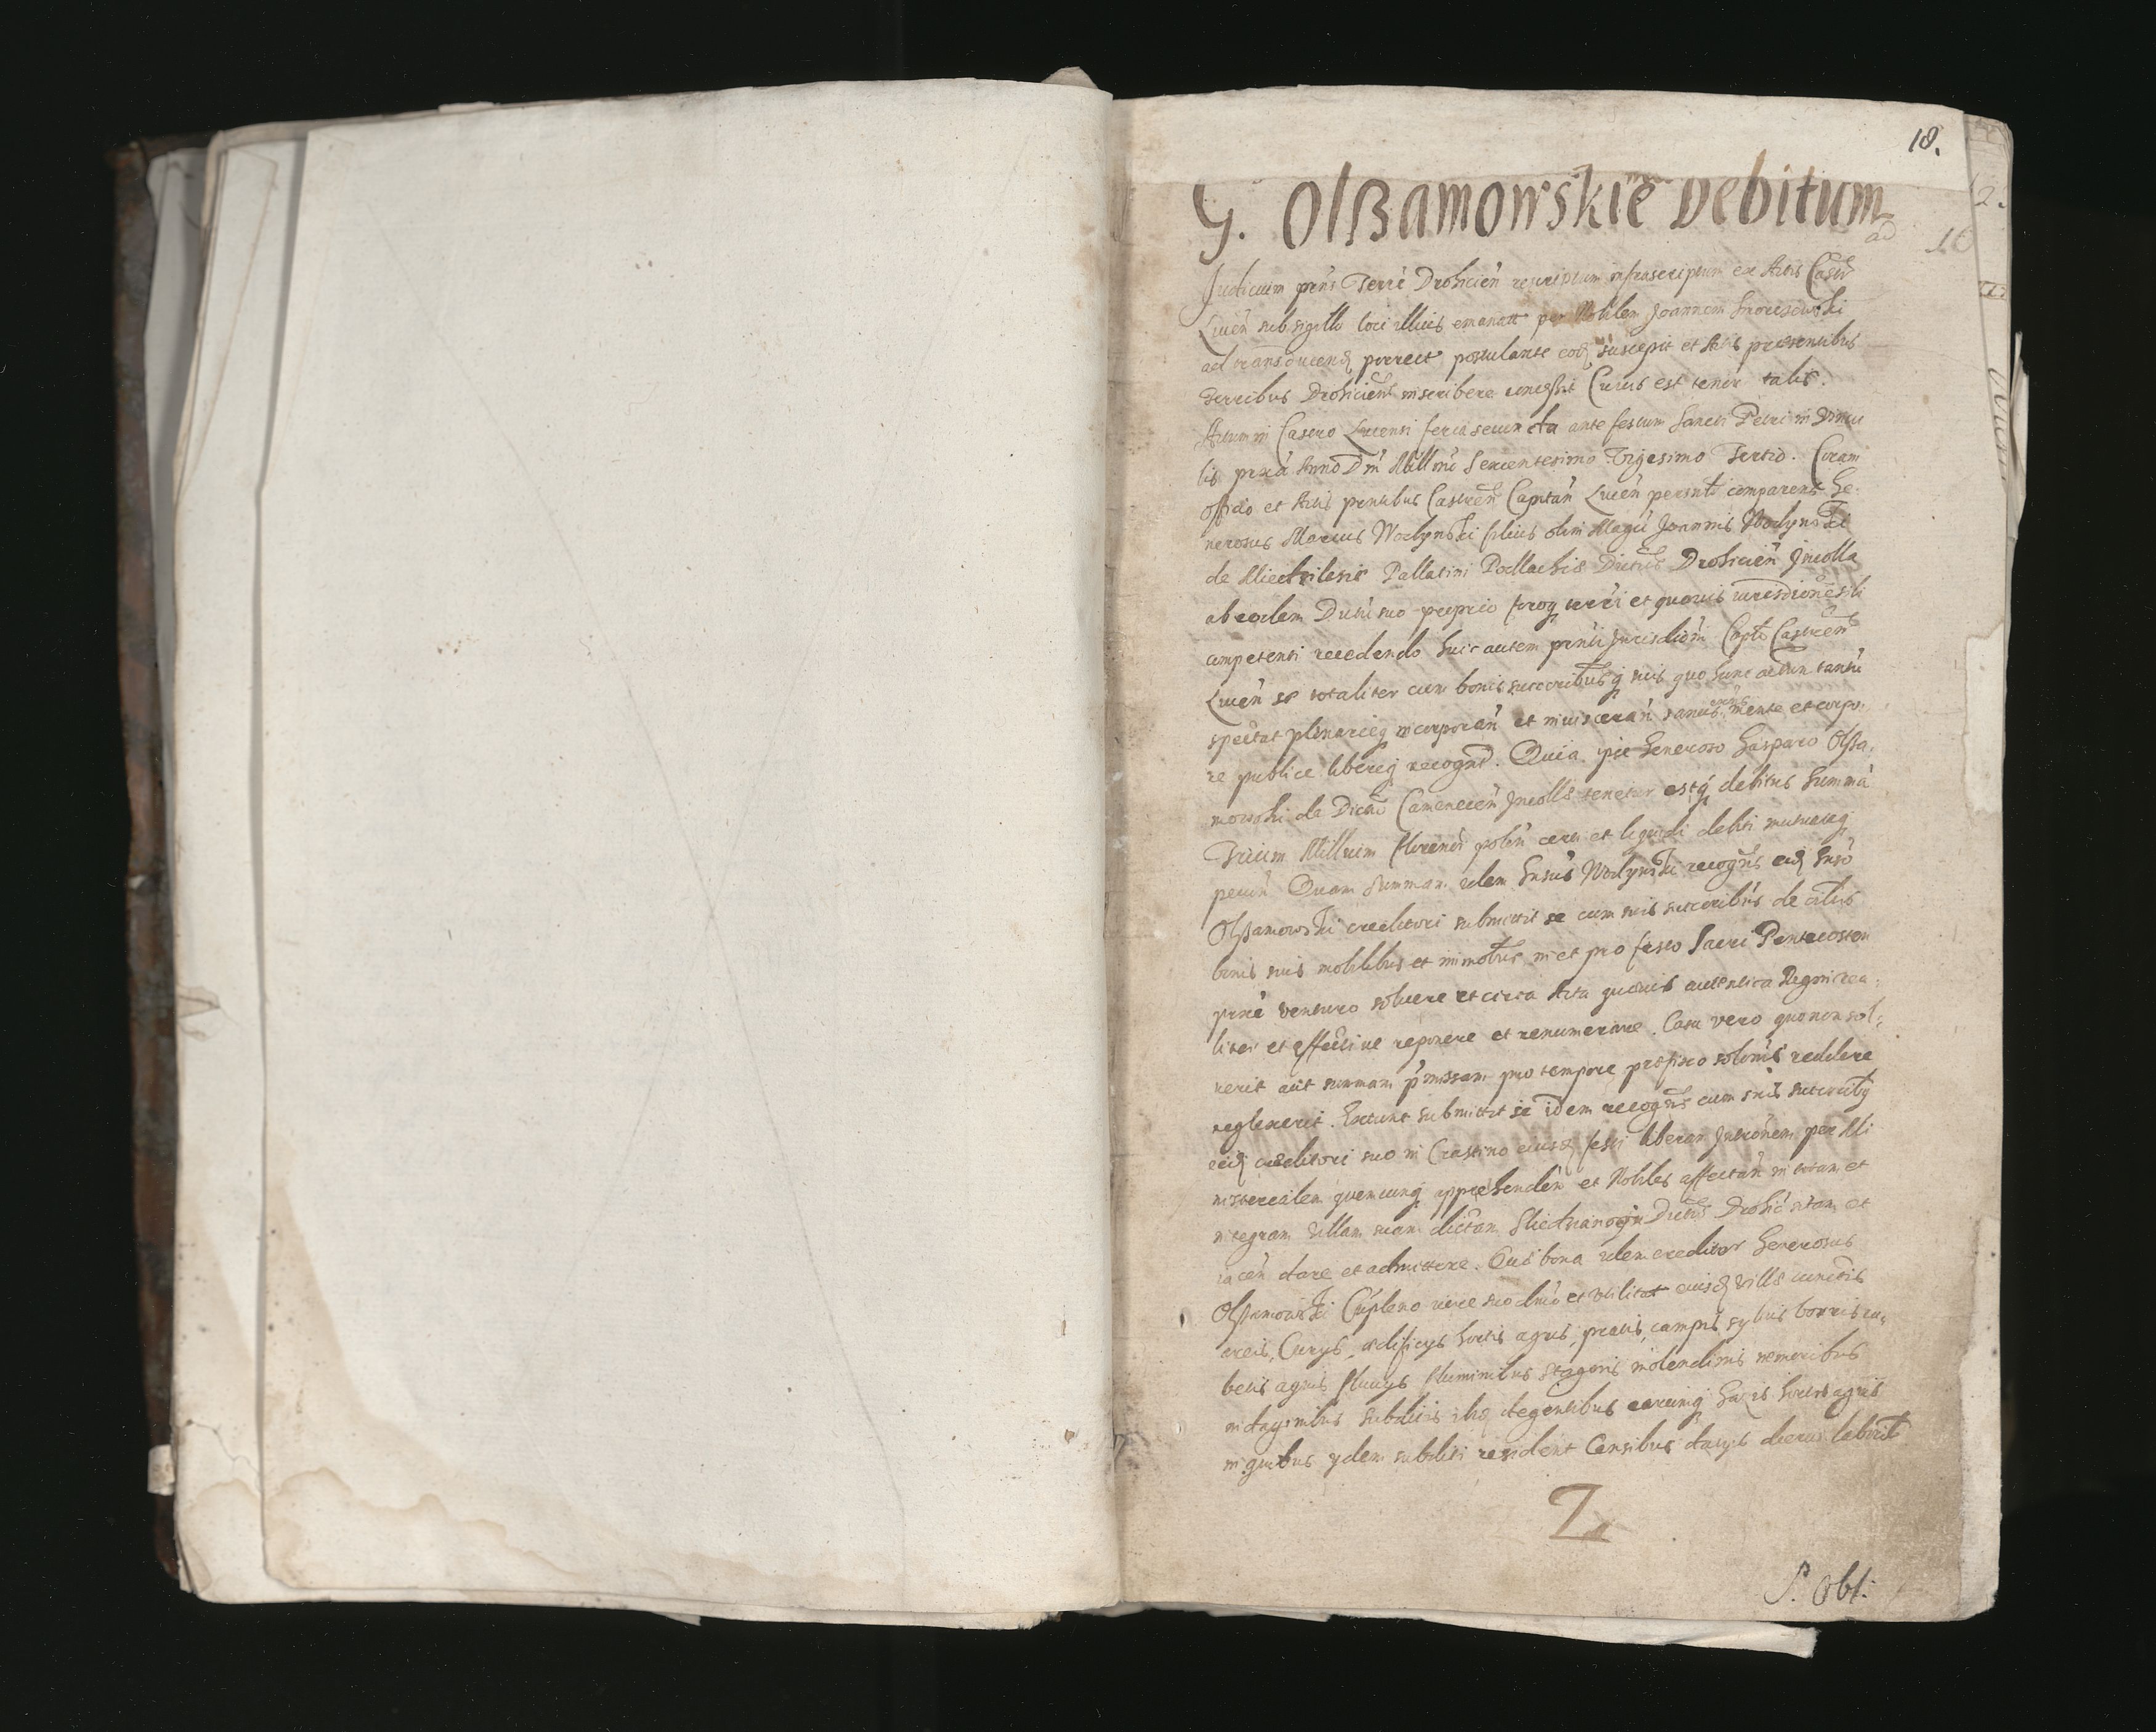 18.
G. Olßamowskie Debitum
ad
Judicium prns Terre Drohicien rescriptum infrascriptum ex Actis Castr
Liuen sub sigillo loci illius emanatt per Nobilem Joannem
ad transducend porrect postulante eod suscepit et Actis praesentibus
Terribus Drohicien inscribere concessit Cuius est tenor talis.
Actum in Castro Liuensi feria secunda ante festum Sancti Petri in Vincu
lis proxa Anno Dni Millmo Sexcentesimo Vigesimo Tertio. Coram
offido et Actis prntibus Castren Capitan Liuen personlr comparens Ge-
nerosus Marcus Wodynski filius olim Magci Joannis Wodynski
de Pallatini Podlachie Districts Drohicien Incolla
ab eodem Districtu suo proprio foroq terri et quouis iurisdictione sibi
competenti recedendo huic autem prnti Jurisdictioni Capto Castren
Liuen se totaliter cum bonis succoribusq suis quo hunc actum tantu
spectat plenarieq incorporan et inuisceran sanus mente et corpo-
re publice libereq recognt. Quia ipse Generoso Gasparo Olßa-
mowski de Districtu Camenecen Incolle tenetur estq debitus Summa
Trium Millium florenor polon certi et liquidi debiti mutueq
pecun Quam Summam idem Gnsus Wodynski recogns eid Gnso
Olßamowski creditori submittit se cum suis succoribus de oibus
bonis suis mobilibus et immobus in et pro festo Sacri Pentecosten
proxe venturo soluere et circa Acta quouis autentica Regni rea-
liter et effectiue reponere et renumerare. Casu vero quo non sol-
uerit aut summam pmissam pro tempore prefixo solonis reddere
neglexerit. Extunc submittit se idem recogns cum suis succoribq
eid creditori suo in Crastino eiusd festi liberam Intronem per Mi
nisterialem quemcunq apprehenden et Nobiles affectan in totam et
integram villam suam dictam Districts Drohic sitam et
iacen dare et admittere. Que bona idem creditor Generosus
Olßamowski Cu pleno iure suo dnio et vtilitat eiusd ville cunctis
areis, Curys, aedificys hortis agris, pratis, campis, syluis borris ru-
betis aquis fluuys fluminibus stagnis molendinis nemoribus
indaginibus subditis ibid degentibus earumq hortis agris
in quibus ydem subditi resident Censibus datys dierum laborib
2
S. Obl: